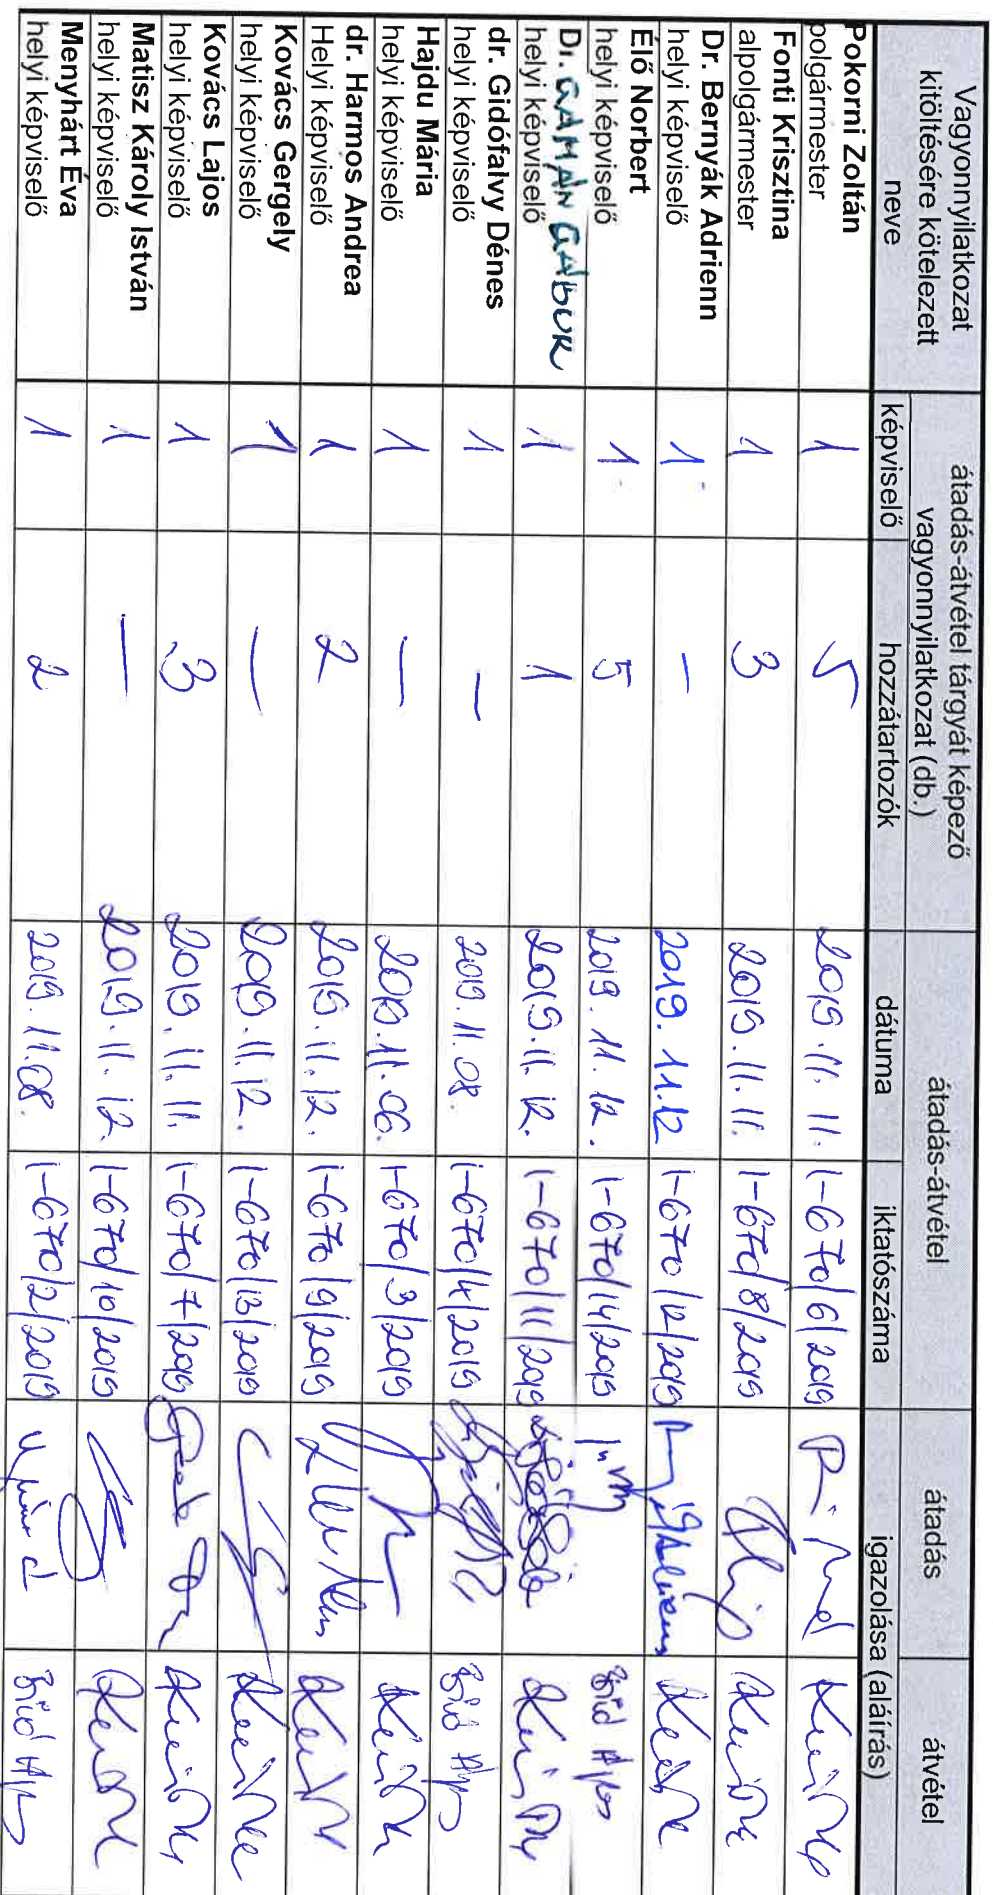 Vagyonnyilatkozat kitöltésére kötelezett neve átadás-átvétel tárgyát képező vagyonnyilatkozat (db.) átadás-átvétel
képviselő hozzátartozók dátuma iktatószáma átadás átvétel
igazolása (aláírás)
Pokorni Zoltán
polgármester 1 5 2019.11.11. 1-670/6/2019
Fonti Krisztina
alpolgármester 1 3 2019.11.11. 1-670/8/2019
Dr. Bernyák Adrienn
helyi képviselő 1 - 2019.11.12 1-670/12/2019
Élő Norbert
helyi képviselő 1 5 2019.11.12. 1-670/14/2019
Dr. GAMÁN GÁBOR
helyi képviselő 1 1 2019.11.12. 1-670/11/2019
dr. Gidófalvy Dénes
helyi képviselő 1 - 2019.11.08. 1-670/4/2019
Hajdu Mária
helyi képviselő 1 - 2019.11.06. 1-670/3/2019
dr. Harmos Andrea
Helyi képviselő 1 2 2019.11.12. 1-670/9/2019
Kovács Gergely
helyi képviselő 1 - 2019.11.12. 1-670/13/2019
Kovács Lajos
helyi képviselő 1 3 2019.11.11. 1-670/7/2019
Matisz Károly István
helyi képviselő 1 - 2019.11.12. 1-670/10/2019
Menyhárt Éva
helyi képviselő 1 2 2019.11.08. 1-670/2/2019